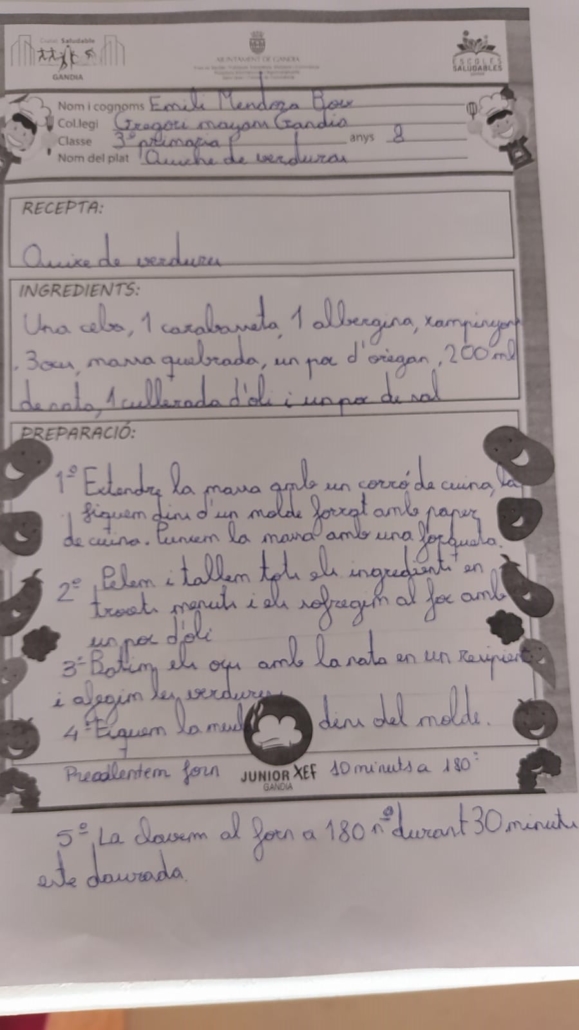 Ciutat Saludable
GANDIA
AJUNTAMENT DE GANDIA
ESCOLES
SALUDABLES
Nom i cognoms Emili Mendoza
Col.legi Gregori mayans Gandia
Classe 3º primaria anys 8
Nom del plat Quiche de verduras
RECEPTA:
Quixe de verdures
INGREDIENTS:
Una ceba, 1 carabasseta, 1 albergina, xampinyons
. 3 ous, massa quebrada, un poc d'oregan, 200 ml
de nata, 1 cullerada d'oli i un poc de sal
PREPARACIÓ:
1º Extendre la massa amb un corró de cuina, la
fiquem dins d'un molde forrat amb paper
de cuina. Punxem la massa amb una forqueta.
2º Pelem i tallem tots els ingredients en
trossets menuts i els sofregim al foc amb
un poc d'oli
3º Batim els ous amb la nata en un recipient
i afegim les verdures
4º Fiquem la dins del molde.
Precalentem forn 10 minuts a 180º
JUNIOR XEF
GANDIA
5º La al forn a 180 durant 30 minuts
este daurada.